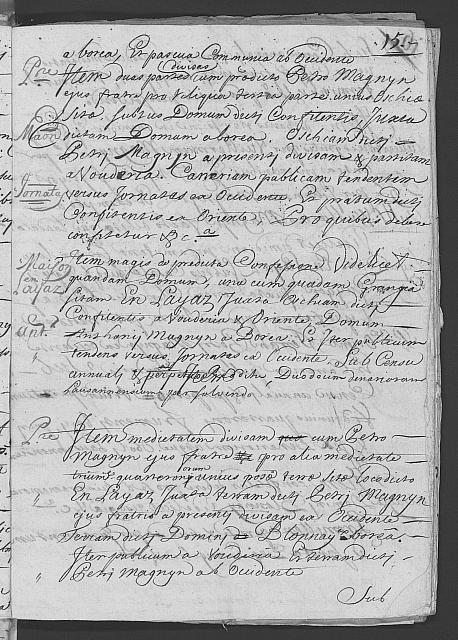 1517
a borea, Et pascua Communia ab Occidente
Pre Item duas partes divisas cum predicto Petro Magnyn
ejus fratre pro reliqua tertia parte unius Oschiæ
Sitæ subtus Domum dicti Confitentis, Juxta
Maōn dictam Domum a borea. Oschiam dicti
Petri Magnyn a presenti divisam & partitam
a Vouderia. Carreriam publicam tendentem
Jornata versus Jornatas ex Occidente. Et pratum dicti
Confitentis ex Oriente, Pro quibus debere
confitetur &c.a
Maison en Layaz Item magis ex predicta Confessione Videlicet
quandam Domum, una cum quadam Grangia
sitam En Layaz Juxta Oschiam dicti
Ant. Confitentis a Vouderia & Oriente, Domum
Anthonij Magnyn a Borea. Et Iter publicum
tendens versus Jornatas ex Occidente. Sub Censu
annuali & perpetuo Duodecim denariorum
Lausannensium per solvendo
Pre Item medietatem divisam cum Petro
Magnyn ejus fratre pro alia medietate
trium quarteronorum unius posæ terræ sitæ loco dicto
" En Layaz Juxta terram dicti Petri Magnyn
ejus fratris a presenti divisam ex Occidente
" Terram dicti Domini de Blonnay a borea.
Iter publicum a Vouderia Et terram dicti
" Petri Magnyn ab Occidente
Sub